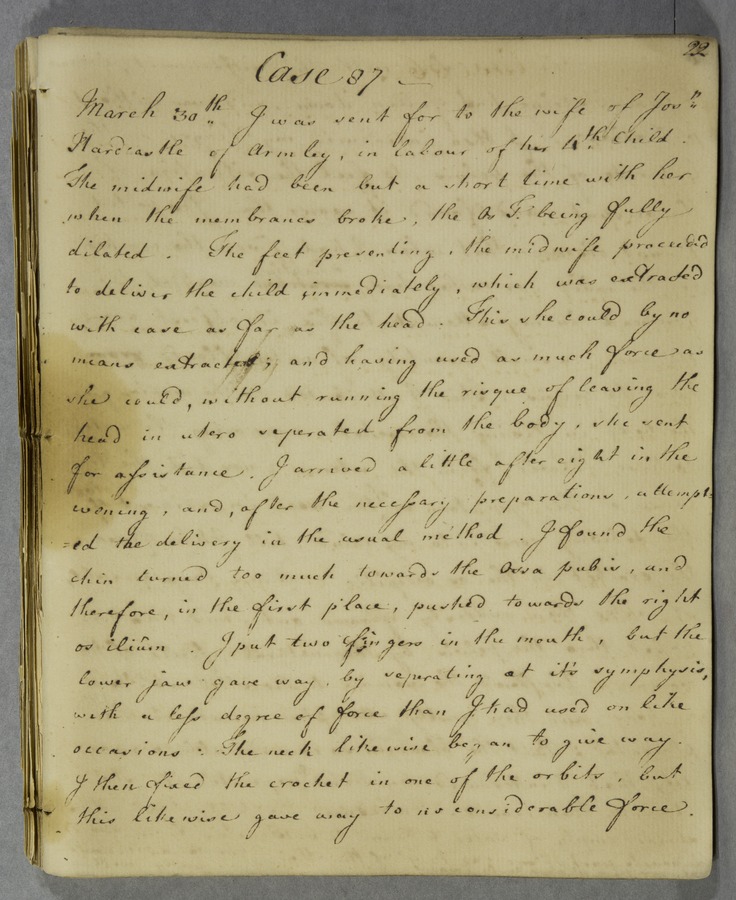 22
Case 87 —
March 30th. I was sent for to the wife of Josh.
Hardcastle of Armley, in labour of her 4th Child.
The midwife had been but a short time with her
when the membranes broke, the Os T. being fully
dilated. The feet presenting, the midwife proceeded
to deliver the child immediately, which was extracted
with ease as far as the head. This she could by no
means extract; and having used as much force as
she could, without running the risque of leaving the
head in utero seperated from the body, she sent
for assistance. I arrived a little after eight in the
evening, and, after the necessary preparations, attempt=
=ed the delivery in the usual method. I found the
chin turned too much towards the Ossa pubis, and
therefore, in the first place, pushed towards the right
os ilium. I put two fingers in the mouth, but the
lower jaw gave way, by seperating at it's symphysis,
with a less degree of force than I had used on like
occasions: The neck likewise began to give way.
I then fixed the crochet in one of the orbits, but
this likewise gave way to no considerable force.